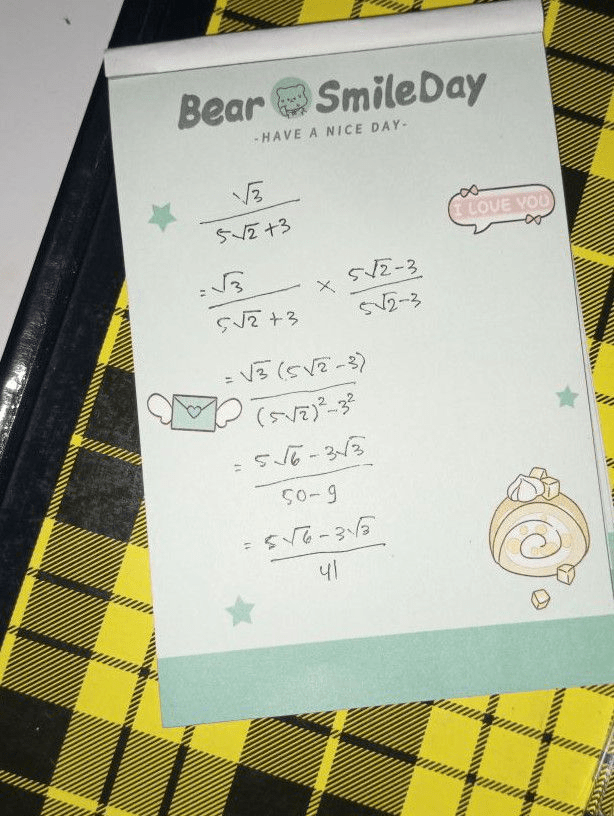 Bear SmileDay
-HAVE A NICE DAY-
I LOVE YOU
√3
5√2 + 3
= √3 × 5√2 - 3
5√2 + 3 5√2 - 3
= √3 (5√2 - 3)
(5√2)² - 3²
= 5√6 - 3√3
50 - 9
= 5√6 - 3√3
41